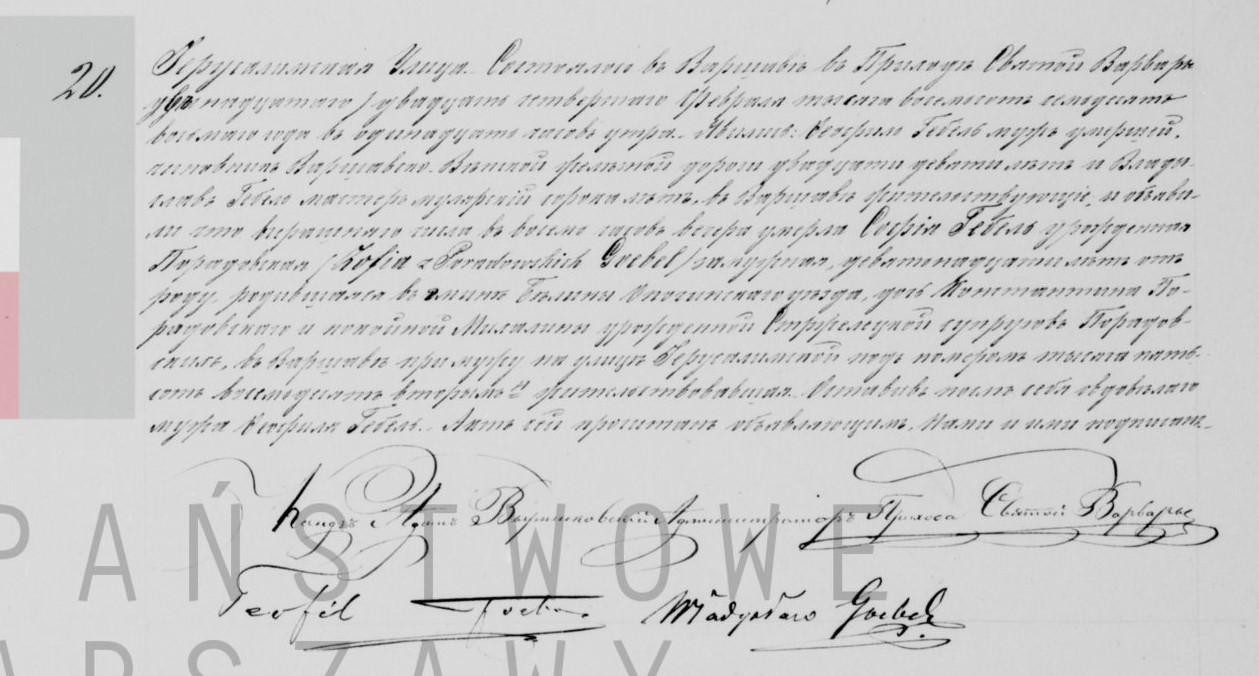 20.
Іерусалимская Улица. Состоялось въ Варшавѣ въ Приходѣ Святой Варвары
двѣнадцатаго / двадцать четвертаго Февраля тысяча восемьсотъ семьдесятъ
восьмаго года въ одинадцать часовъ утра. Явились: Ѳеофилъ Гебель мужъ умершей,
чиновникъ Варшавско-Вѣнской желѣзной дороги двадцати девяти лѣтъ и Влади-
славъ Гебель мастеръ мулярскій сорока лѣтъ, въ Варшавѣ жительствующіе, и объяви-
ли что вчерашняго числа въ восемь часовъ вечера умерла Софія Гебель урожденная
Порадовская /Zofia z Poradowskich Goebel/ замужная, девятнадцати лѣтъ отъ
роду, родившаяся въ гминѣ Бѣлины Опочинскаго уѣзда, дочь Константина По-
радовскаго и покойной Михалины урожденной Стржелецкой супруговъ Порадов-
скихъ, въ Варшавѣ при мужу на улицѣ Іерусалимской подъ номеромъ тысяча пять-
сотъ восемьдесятъ вторымъ жительствовавшая. Оставивъ послѣ себя овдовѣлаго
мужа Ѳеофиля Гебель. Актъ сей прочитанъ объявляющимъ, Нами и ими подписанъ.
Ксендзъ Адамъ Администраторъ Прихода Святой Варвары
Teofil Goebel
Władysław Goebel
PAŃSTWOWE
WARSZAWY